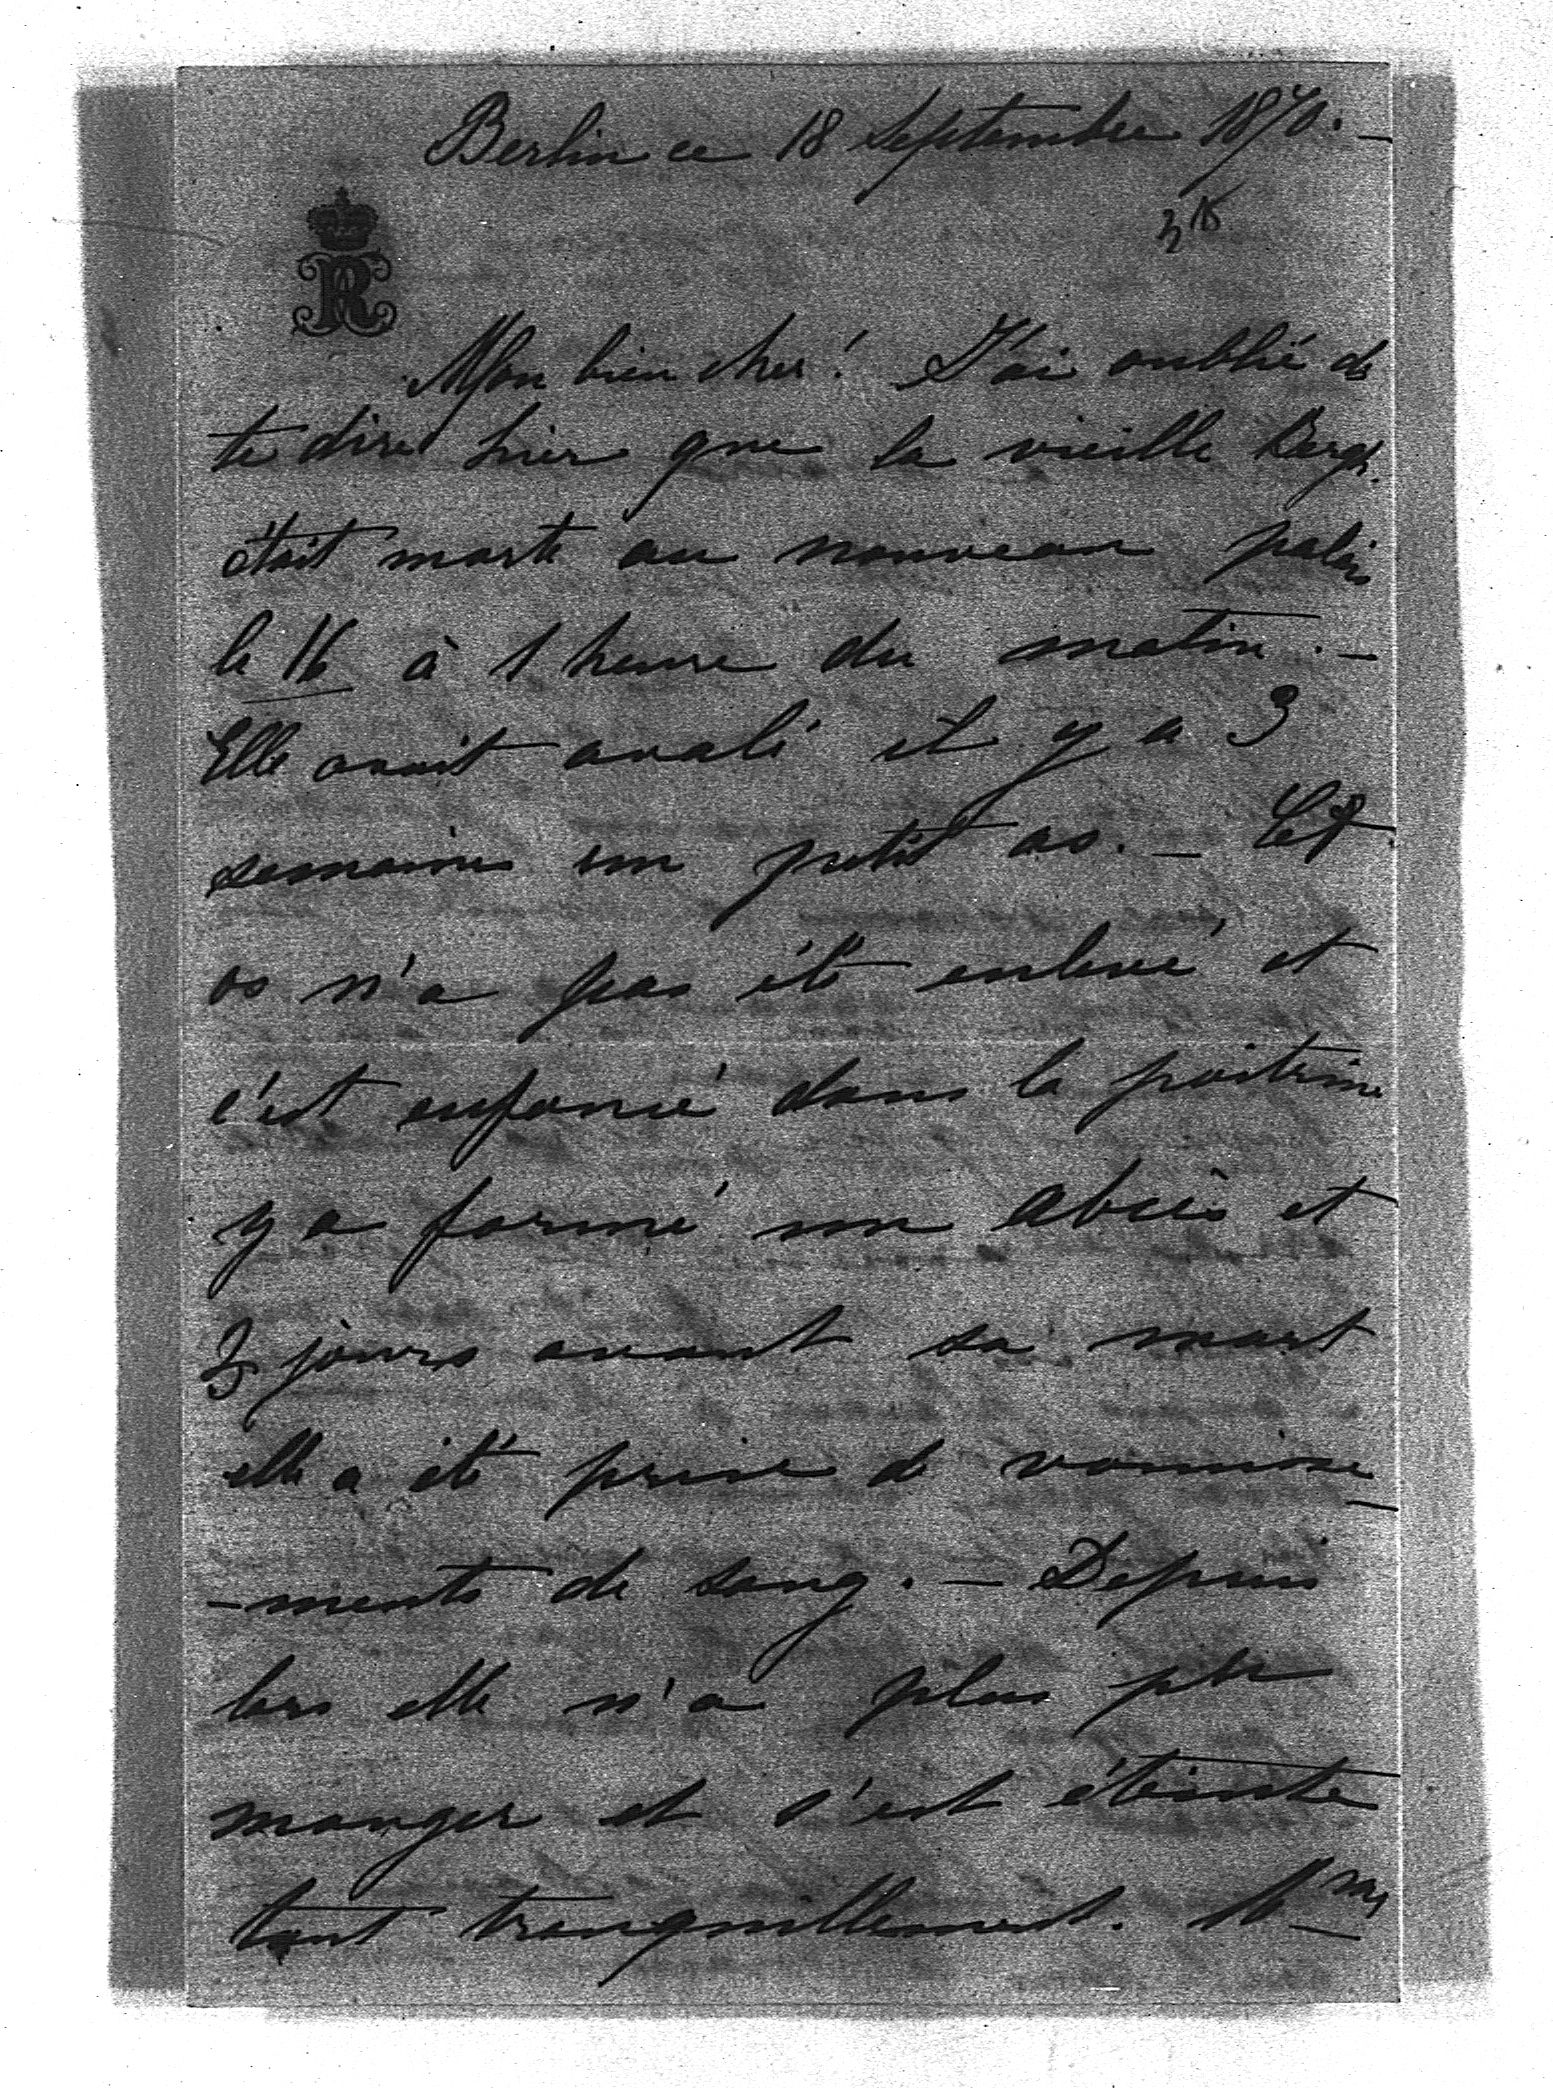 Berlin ce 18 Septembre 1870. -
R
Mon bien cher! J'ai oublié de
te dire hier que la vieille Berg.
était morte au nouveau palais
le 16 à 1 heure du matin. -
Elle avait avalé il y a 3
semaines un petit os. - Cet
os n'a pas été enlevé et
c'est enfoncé dans la poitrine
y a formé un abcès et
3 jours avant sa mort
elle a été prise de vomisse-
-ments de sang. - Depuis
lors elle n'a plus pu
manger et s'est éteinte
tout tranquillement.